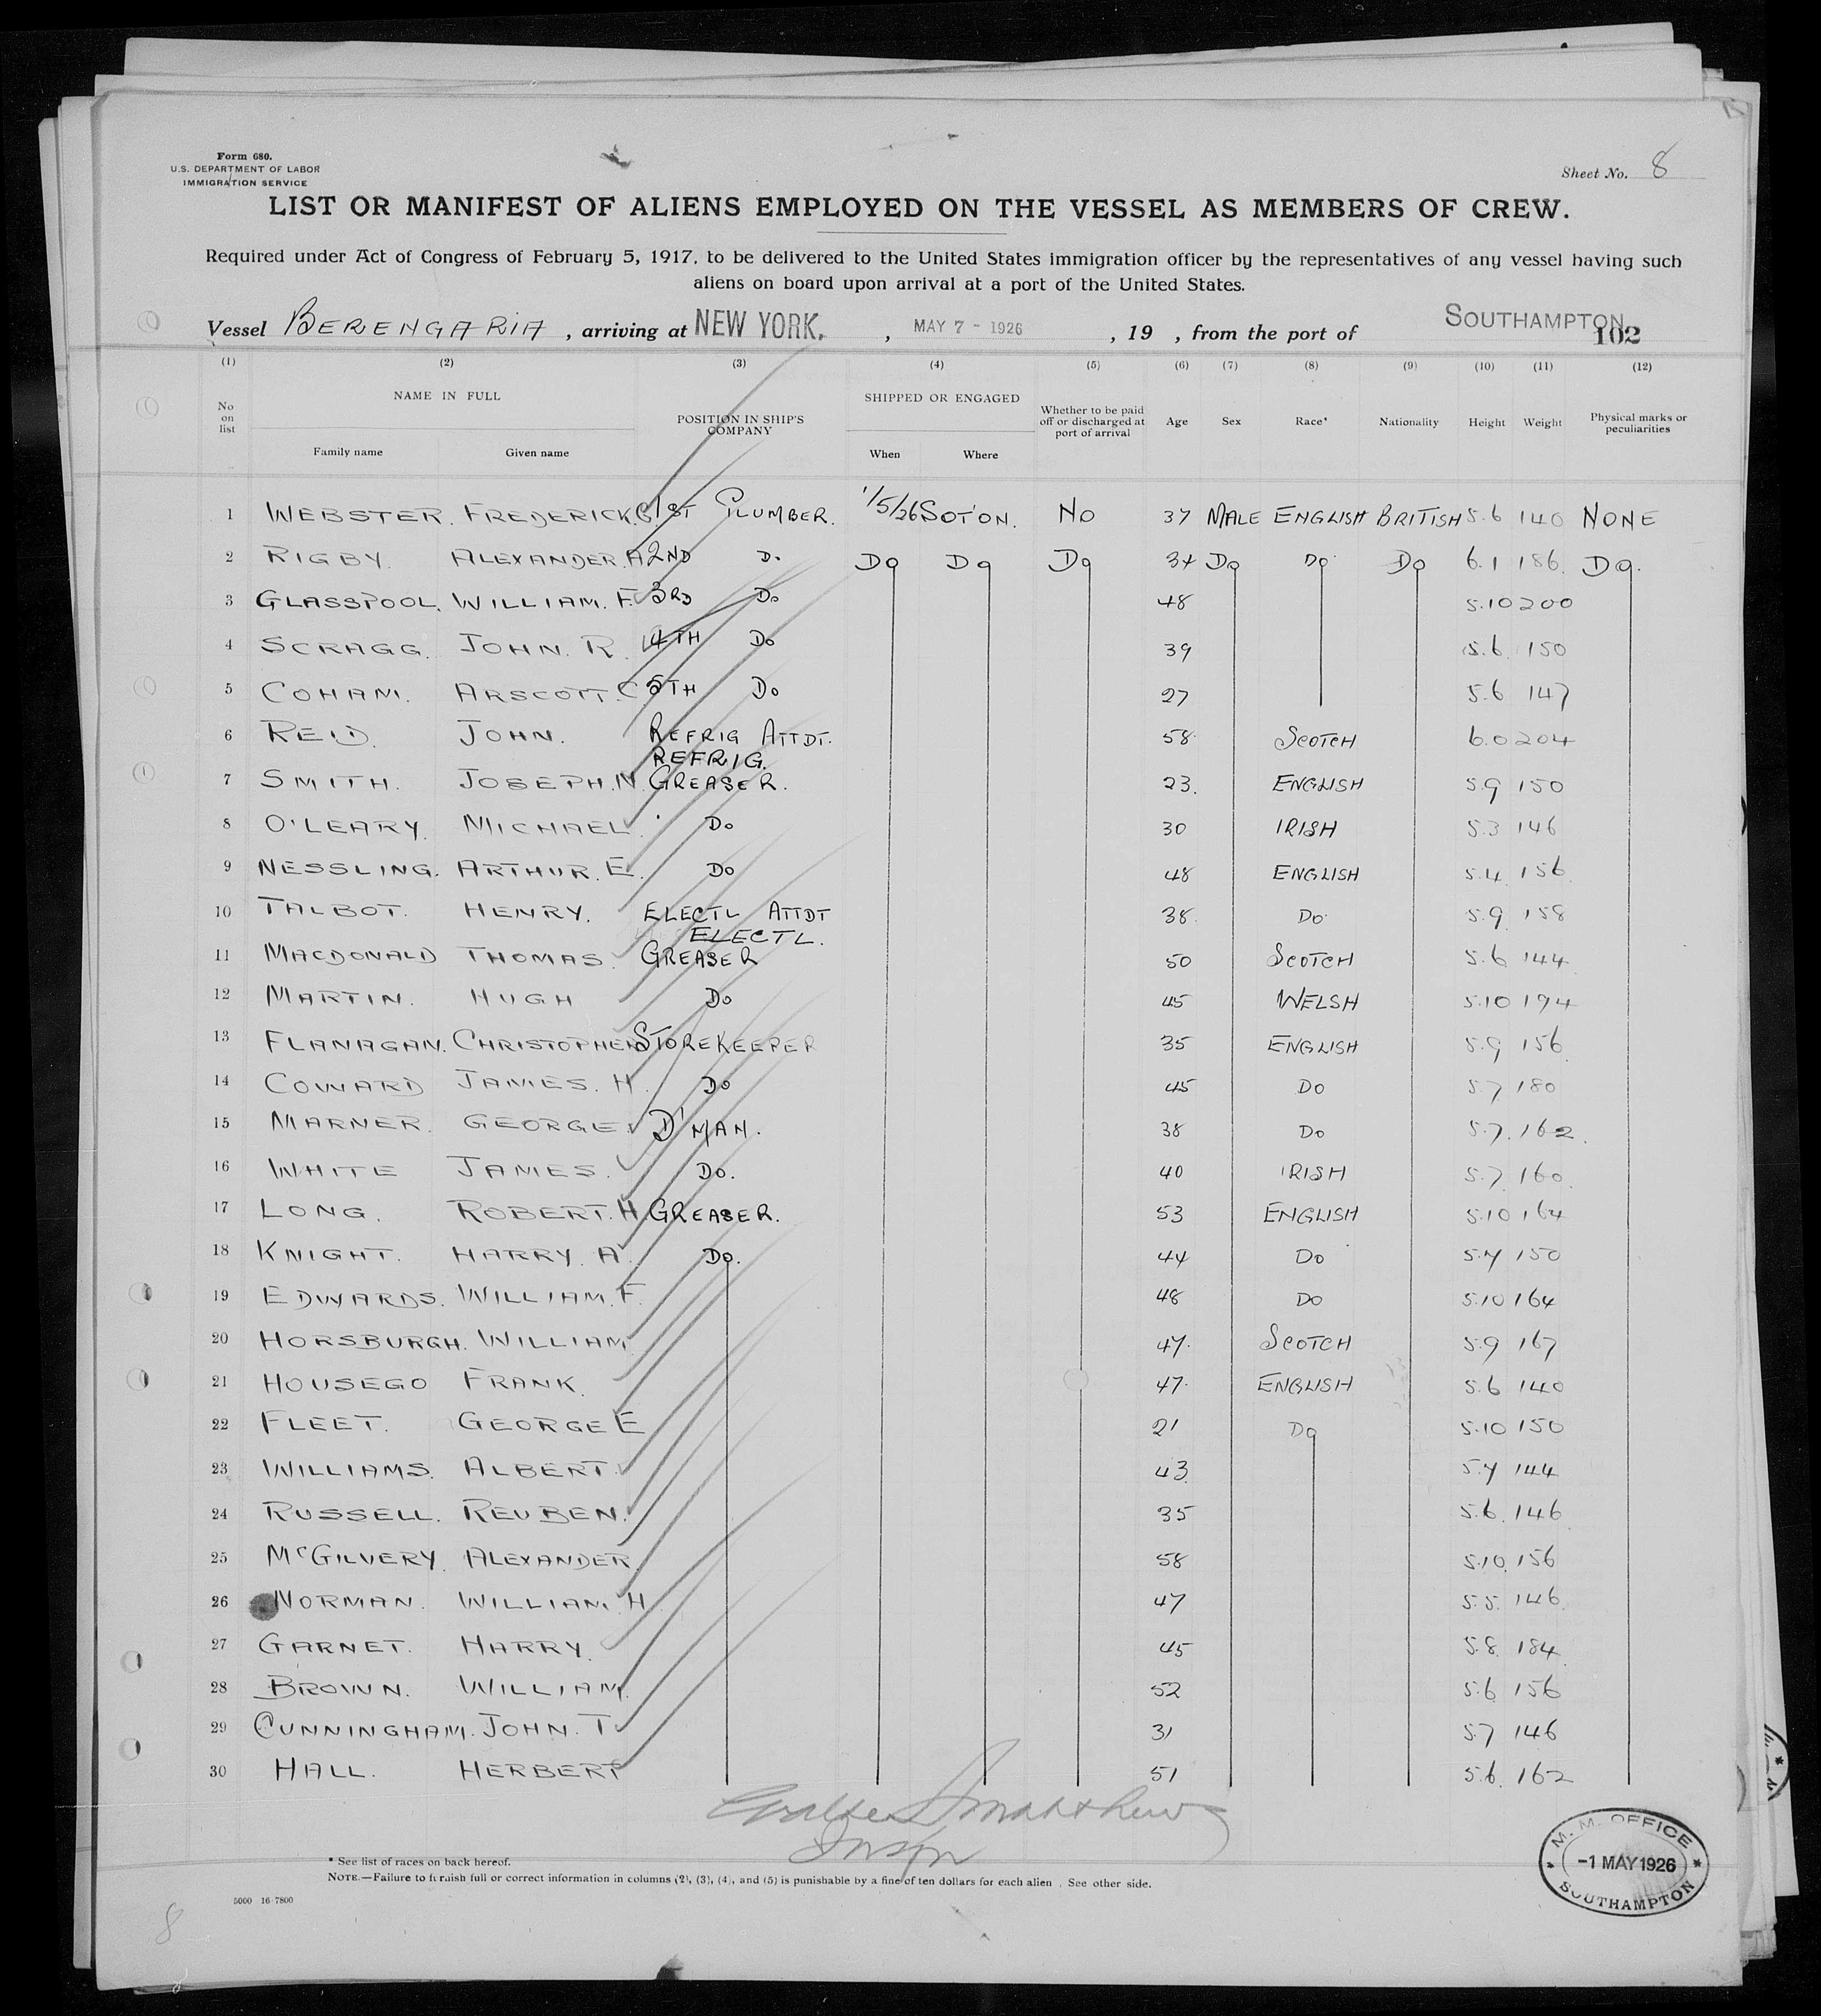 Form 680.
U.S. DEPARTMENT OF LABOR
IMMIGRATION SERVICE
Sheet No. 8
LIST OR MANIFEST OF ALIENS EMPLOYED ON THE VESSEL AS MEMBERS OF CREW.
Required under Act of Congress of February 5, 1917, to be delivered to the United States immigration officer by the representatives of any vessel having such
aliens on board upon arrival at a port of the United States.
Vessel BERENGARIA, arriving at NEW YORK, MAY 7 - 1926, 19 , from the port of SOUTHAMPTON
102
(1) (2) (3) (4) (5) (6) (7) (8) (9) (10) (11) (12)
No on list NAME IN FULL Family name Given name POSITION IN SHIP'S COMPANY SHIPPED OR ENGAGED When Where Whether to be paid off or discharged at port of arrival Age Sex Race* Nationality Height Weight Physical marks or peculiarities
1 WEBSTER. FREDERICK.C 1ST PLUMBER. 1/5/26 SOT'ON. NO 37 MALE ENGLISH BRITISH 5.6 140 NONE
2 RIGBY. ALEXANDER.A 2ND Do Do Do Do 34 Do Do Do 6.1 186. Do.
3 GLASSPOOL. WILLIAM. F. 3RD Do 48 5.10 200
4 SCRAGG. JOHN. R. 4TH Do 39 5.6 150
5 COHAM. ARSCOTT. C 5TH Do 27 5.6 147
6 REID. JOHN. REFRIG ATTDT. 58 SCOTCH 6.0 204
REFRIG.
7 SMITH. JOSEPH.N. GREASER. 23. ENGLISH 5.9 150
8 O'LEARY. MICHAEL Do 30 IRISH 5.3 146
9 NESSLING. ARTHUR. E. Do 48 ENGLISH 5.4 156
10 TALBOT. HENRY. ELECTL ATTDT 38. Do 5.9 158
ELECTL.
11 MACDONALD THOMAS. GREASER 50 SCOTCH 5.6 144
12 MARTIN. HUGH Do 45 WELSH 5.10 194
13 FLANAGAN. CHRISTOPHER STOREKEEPER 35 ENGLISH 5.9 156
14 COWARD JAMES. H. Do 45 Do 5.7 180
15 MARNER. GEORGE. D'MAN. 38 Do 5.7. 162.
16 WHITE JAMES. Do. 40 IRISH 5.7. 160.
17 LONG. ROBERT. H. GREASER. 53 ENGLISH 5.10 164
18 KNIGHT. HARRY. A. Do. 44 Do 5.4 150
19 EDWARDS. WILLIAM. F. 48 Do 5.10 164
20 HORSBURGH. WILLIAM 47. SCOTCH 5.9 167
21 HOUSEGO FRANK. 47. ENGLISH 5.6 140
22 FLEET. GEORGE E 21 Do 5.10 150
23 WILLIAMS. ALBERT. 43. 5.4 144
24 RUSSELL. REUBEN. 35 5.6. 146
25 McGILVERY. ALEXANDER 58 5.10. 156
26 NORMAN. WILLIAM. H. 47 5.5. 146
27 GARNET. HARRY. 45 5.8. 184
28 BROWN. WILLIAM. 52 5.6 156
29 CUNNINGHAM. JOHN. T. 31 5.7 146
30 HALL. HERBERT 51 5.6. 162
Walter J Matthews
Insp
* See list of races on back hereof.
NOTE.—Failure to furnish full or correct information in columns (2), (3), (4), and (5) is punishable by a fine of ten dollars for each alien . See other side.
5000 16 7800
M. M. OFFICE
-1 MAY 1926
SOUTHAMPTON
8